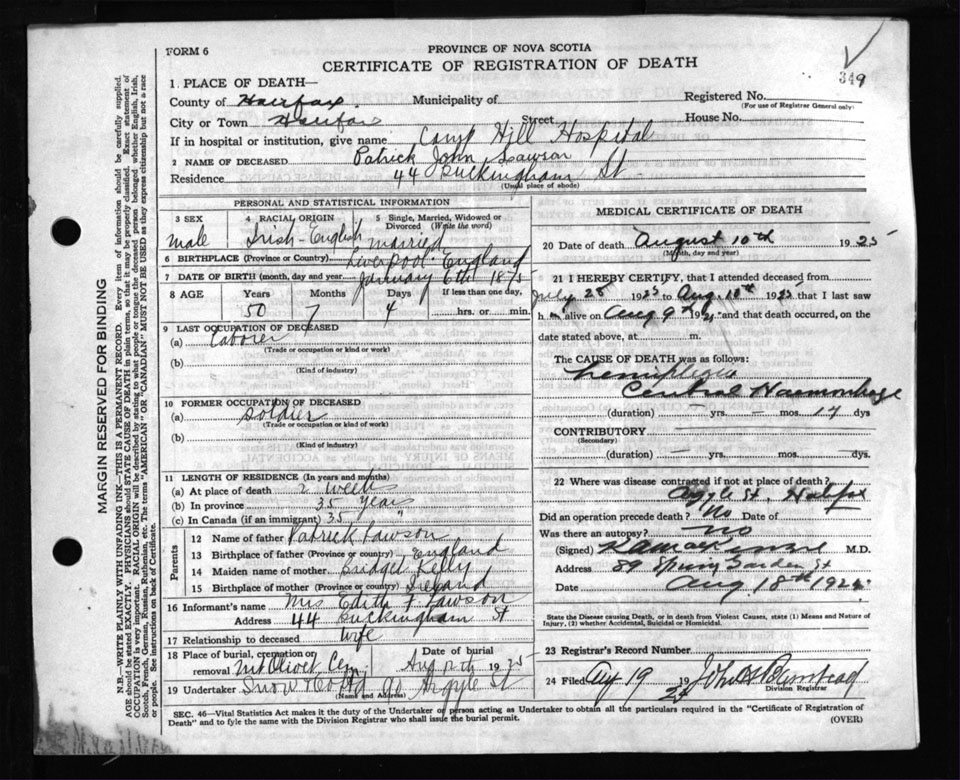 349
FORM 6
PROVINCE OF NOVA SCOTIA
CERTIFICATE OF REGISTRATION OF DEATH
1. PLACE OF DEATH—
County of Halifax. Municipality of Registered No.
(For use of Registrar General only)
City or Town Halifax Street House No.
If in hospital or institution, give name Camp Hill Hospital
2 NAME OF DECEASED Patrick John Lawson
Residence 44 Buckingham St
(Usual place of abode)
PERSONAL AND STATISTICAL INFORMATION
3 SEX 4 RACIAL ORIGIN 5 Single, Married, Widowed or Divorced (Write the word)
male Irish-English married
6 BIRTHPLACE (Province or Country) Liverpool England
7 DATE OF BIRTH (month, day and year) January 6th 1875
8 AGE Years Months Days If less than one day,
50 7 4 hrs. or min.
9 LAST OCCUPATION OF DECEASED
(a) Laborer
(Trade or occupation or kind of work)
(b)
(Kind of industry)
10 FORMER OCCUPATION OF DECEASED
(a) Soldier
(Trade or occupation or kind of work)
(b)
(Kind of industry)
11 LENGTH OF RESIDENCE (In years and months)
(a) At place of death 2 weeks
(b) In province 35 years
(c) In Canada (if an immigrant) 35 "
Parents
12 Name of father Patrick Lawson
13 Birthplace of father (Province or country) England
14 Maiden name of mother Bridget Kelly
15 Birthplace of mother (Province or country) Ireland
16 Informant's name Mrs Edith F Lawson
Address 44 Buckingham St
17 Relationship to deceased Wife
18 Place of burial, cremation or removal Mt Olivet Cem. Aug 12th 1925
19 Undertaker Snow & Co Ltd 90 Argyle St
(Name and Address)
MEDICAL CERTIFICATE OF DEATH
20 Date of death August 10th 1925
(Month, day and year)
21 I HEREBY CERTIFY, that I attended deceased from
July 28 1925 to Aug. 10th 1925 that I last saw
h im alive on Aug 9th 1925, and that death occurred, on
date stated above, at m.
The CAUSE OF DEATH was as follows:
Hemiplegia
Cerebral Haemorrhage
(duration) — yrs. — mos. 17 dys
CONTRIBUTORY
(Secondary)
(duration) — yrs. — mos. — dys.
22 Where was disease contracted if not at place of death?
Argyle St. Halifax
Did an operation precede death? No Date of
Was there an autopsy? no
(Signed) M.D.
Address 89 Spring Garden St
Date Aug 18th 1925
State the Disease causing Death, or in death from Violent Causes, state (1) Means and Nature of Injury, (2) whether Accidental, Suicidal or Homicidal.
23 Registrar's Record Number
24 Filed Aug 19 19 John
Division Registrar
SEC. 46—Vital Statistics Act makes it the duty of the Undertaker or person acting as Undertaker to obtain all the particulars required in the "Certificate of Registration of
Death" and to file the same with the Division Registrar who shall issue the burial permit. (OVER)
MARGIN RESERVED FOR BINDING
N.B.—WRITE PLAINLY WITH UNFADING INK—THIS IS A PERMANENT RECORD. Every item of information should be carefully supplied.
AGE should be stated EXACTLY. PHYSICIANS should STATE CAUSE OF DEATH in plain terms, so that it may be properly classified. Exact statement of
OCCUPATION is very important. RACIAL ORIGIN will be described by stating to what people or tongue the deceased person belonged whether English, Irish,
Scotch, French, German, Russian, Ruthenian, etc. The terms "AMERICAN" OR "CANADIAN" MUST NOT BE USED as they express citizenship but not a race
or people. See instructions on back of Certificate.